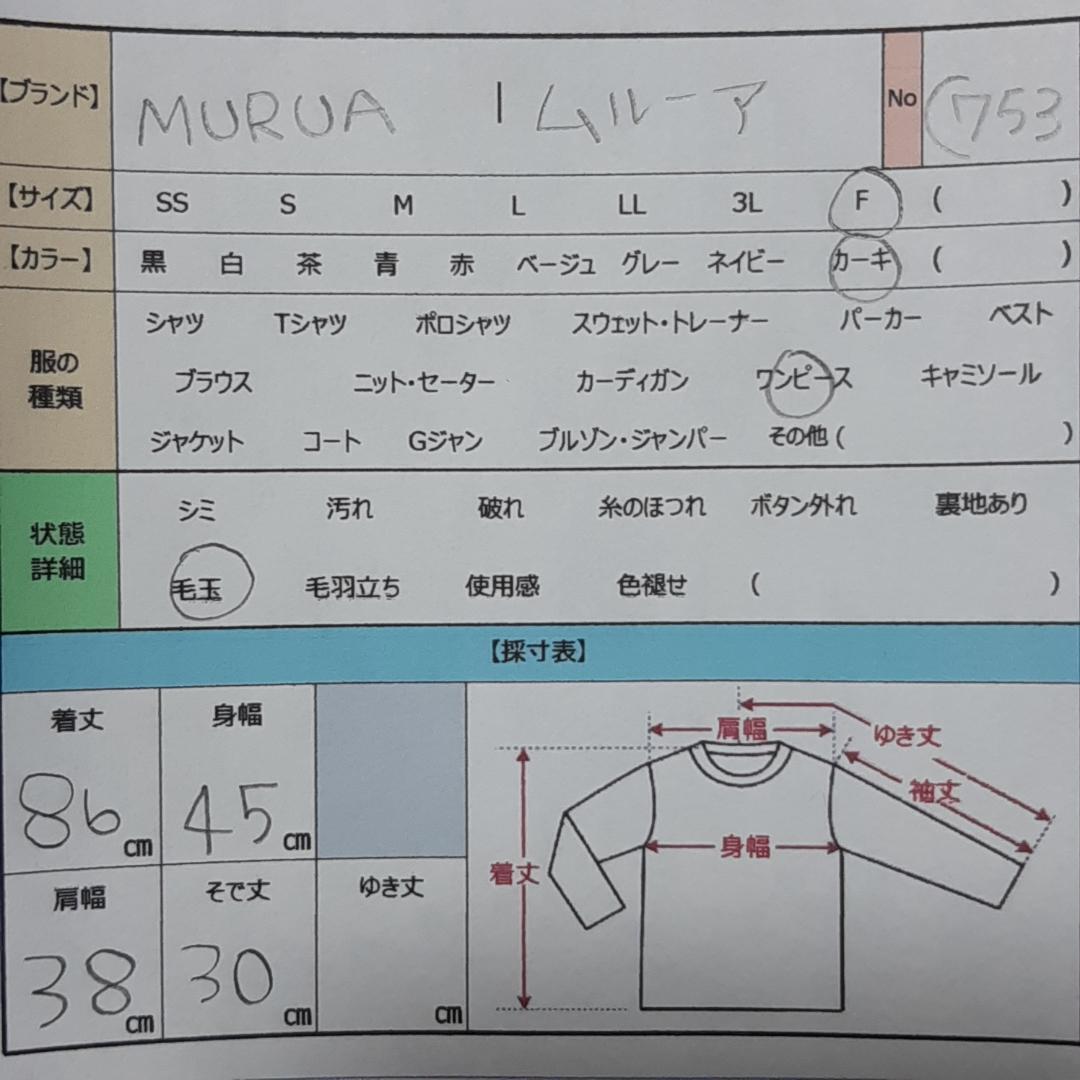 【ブランド】 MURUA | ムルーア No (753
【サイズ】 SS S M L LL 3L F ( )
【カラー】 黒 白 茶 青 赤 ベージュ グレー ネイビー カーキ ( )
服の種類
シャツ Tシャツ ポロシャツ スウェット・トレーナー パーカー ベスト
ブラウス ニット・セーター カーディガン ワンピース キャミソール
ジャケット コート Gジャン ブルゾン・ジャンパー その他 ( )
状態詳細
シミ 汚れ 破れ 糸のほつれ ボタン外れ 裏地あり
毛玉 毛羽立ち 使用感 色褪せ ( )
【採寸表】
着丈 身幅
86cm 45cm
肩幅 そで丈 ゆき丈
38cm 30cm cm
肩幅 ゆき丈
袖丈
身幅
着丈